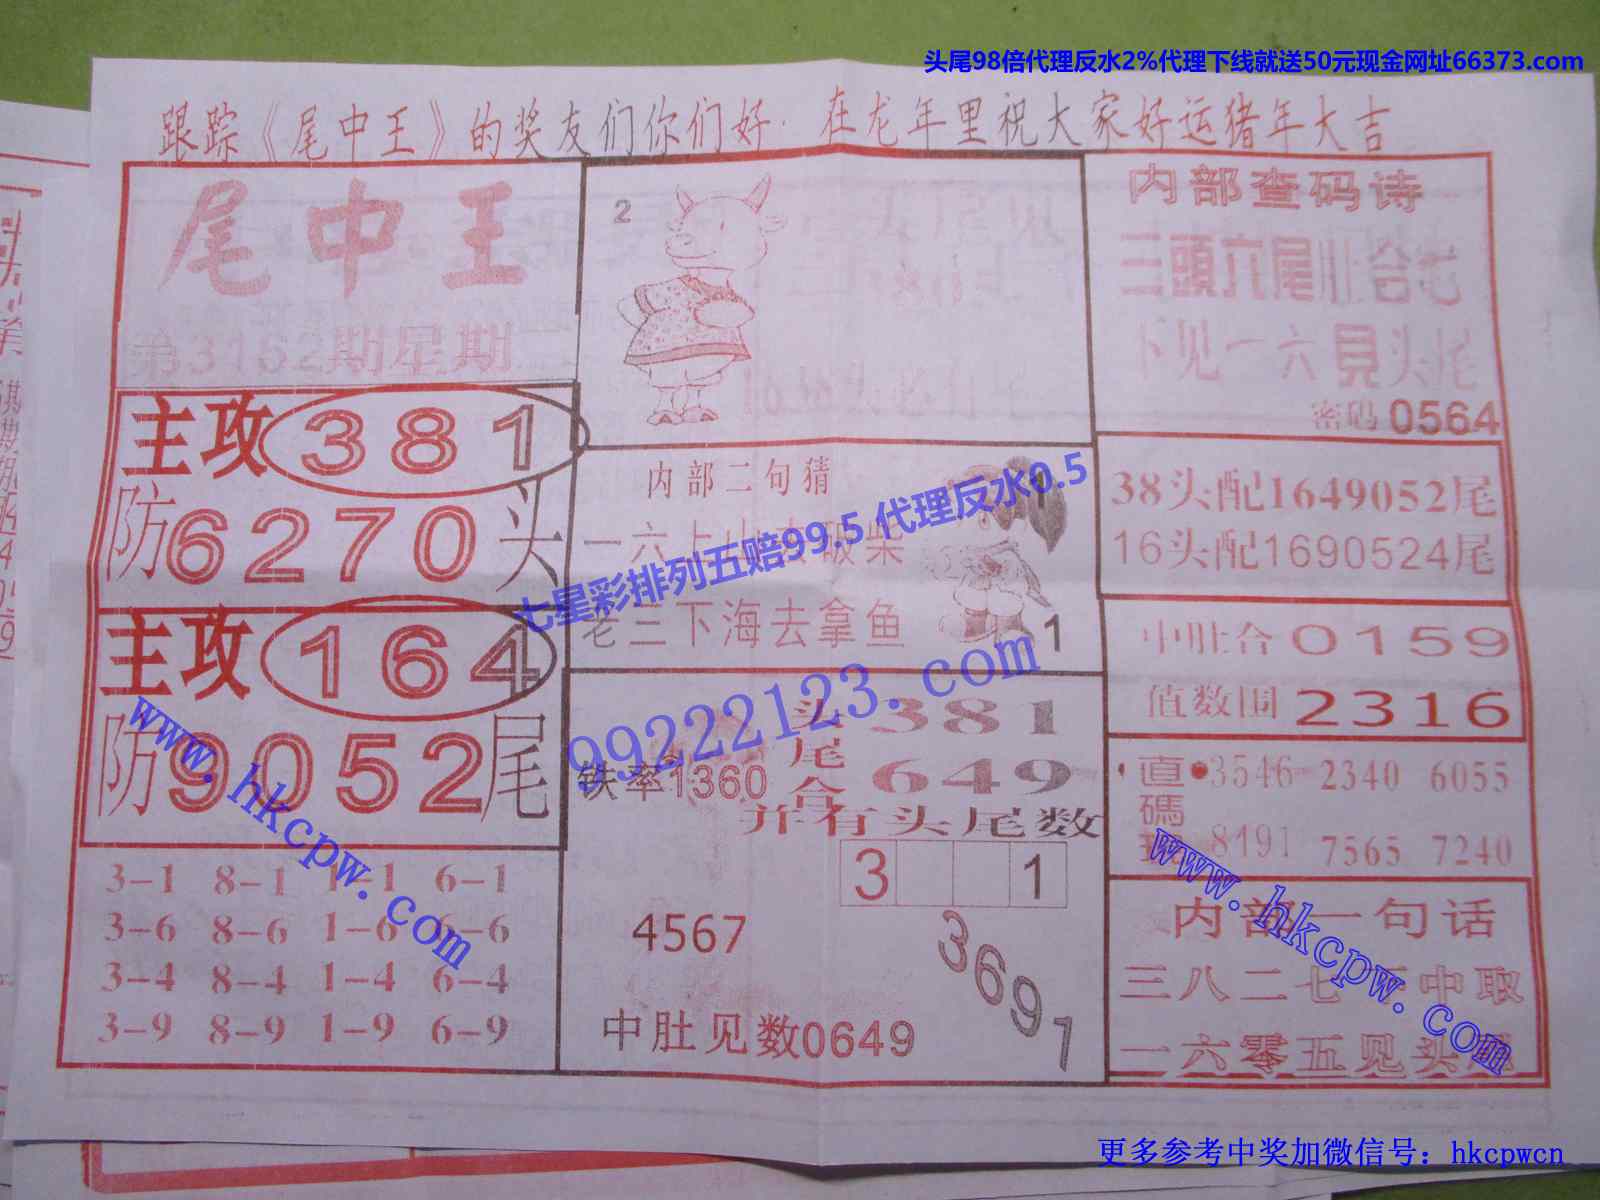 头尾98倍代理反水2%代理下线就送50元现金网址66373.com
跟踪《尾中王》的奖友们你们好·在龙年里祝大家好运猪年大吉
尾中王
第3162期星期
主攻381
防6270头
主攻164
防9052尾
3-1 8-1 1-1 6-1
3-6 8-6 1-6 6-6
3-4 8-4 1-4 6-4
3-9 8-9 1-9 6-9
2
内部二句猜
一六上山去破柴
老三下海去拿鱼
1
1
七星彩排列五赔99.5代理反水0.5
99222123.com
头尾合
381
649
铁率1360
并有头尾数
3 1
4567
3691
中肚见数0649
内部查码诗
三頭六尾肚合七
下见一六見头尾
密码0564
38头配1649052尾
16头配1690524尾
中肚合0159
值数围2316
直碼
3546 2340 6055
8491 7565 7240
内部一句话
三八二七 中取
一六零五见头尾
www.hkcpw.com
www.hkcpw.com
更多参考中奖加微信号：hkcpwcn